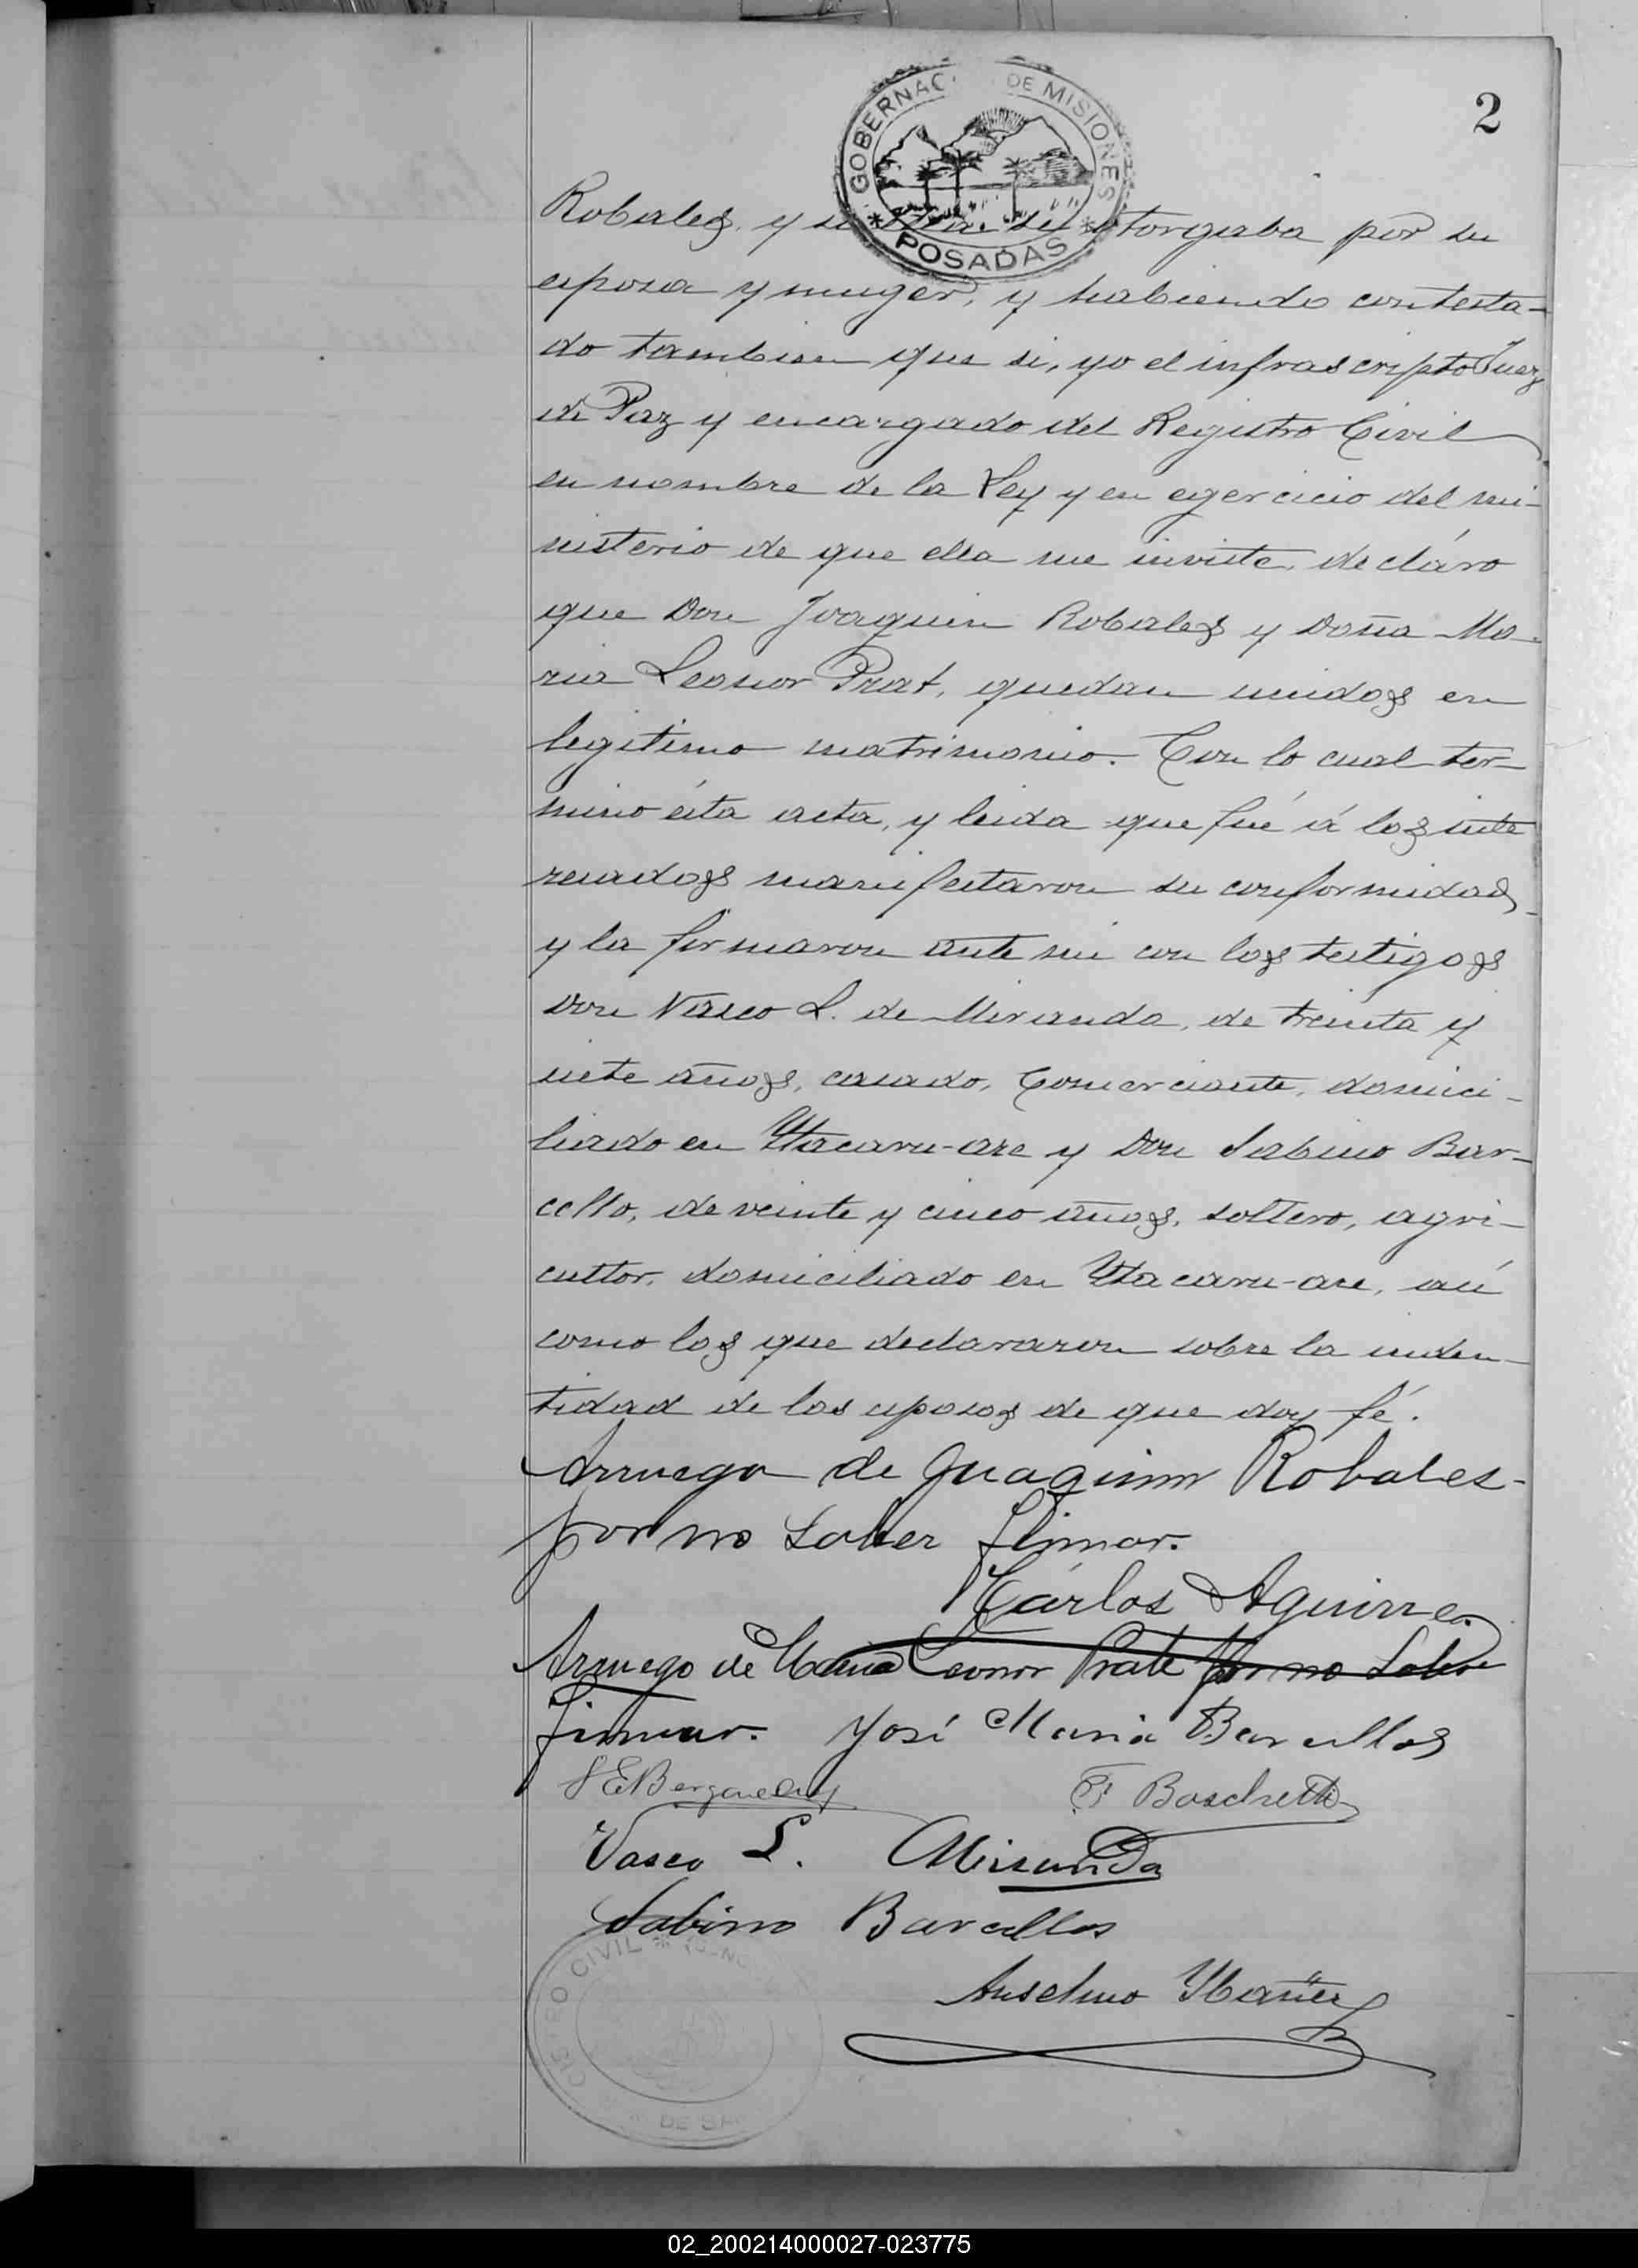 GOBERNAC DE MISIONES
* POSADAS *
2
Robales, y si se otorgaba por su
esposa y muger, y habiendo contesta-
do tambien que si, yo el infrascripto Juez
de Paz y encargado del Registro Civil
en nombre de la Ley y en egercicio del mi-
nisterio de que ella me inviste, decláro
que Don Joaquin Robales y Doña Ma-
ria Leonor Prat, quedan unidos en
legitimo matrimonio. Con lo cual ter-
minó ésta acta, y leida que fué á los inte
resados manifestaron su conformidad,
y la firmaron ante mi con los testigos
Don Vasco L. de Miranda, de treinta y
siete años, casado, Comerciante, domici-
liado en Ytacaru-are y Don Sabino Bar-
cello, de veinte y cinco años, soltero, agri-
cultor, domiciliado en Ytacaru-are, así
como los que declararon sobre la inden-
tidad de los esposos de que doy fé.
Arruego de Juaquinn Robales-
por no Saber firmar.
Cárlos Aguirre
Arruego de Maria Leonor Prate por no Saber
firmar. José Maria Barcellos
Boschetti
Vasco L. Miranda
Sabino Barcellos
Anselmo Ybañez
CIVIL *
02_200214000027-023775